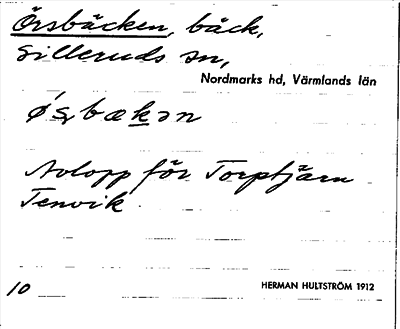 Örsbäcken, bäck,
Silleruds sn,
Nordmarks hd, Värmlands län
Avlopp för Torptjärn
Tenvik
10
HERMAN HULTSTRÖM 1912